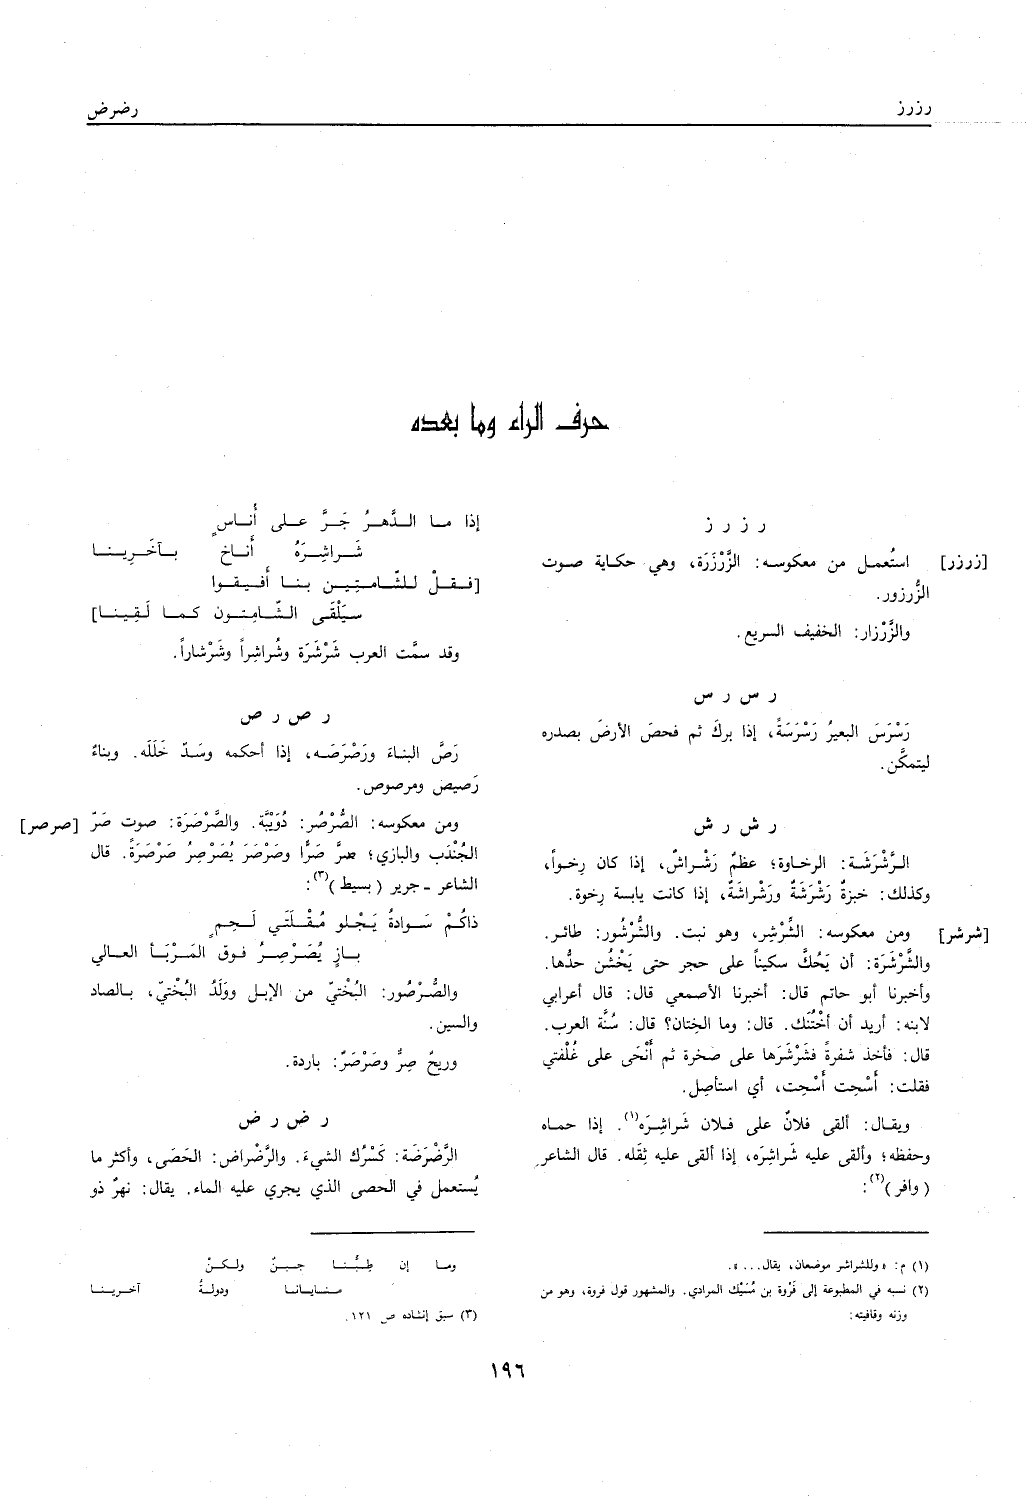 رزرز
رضرض
حرف الراء وما بعده
ر ز ر ز
[زرزر] استُعمل من معكوسه: الزَّرْزَرَة، وهي حكاية صوت
الزُّرزور.
والزَّرْزار: الخفيف السريع.
ر س ر س
رَسْرَسَ البعيرُ رَسْرَسَةً، إذا بركَ ثم فحصَ الأرضَ بصدره
ليتمكَّن.
ر ش ر ش
الرَّشْرَشَة: الرخاوة؛ عظمٌ رَشْراشٌ، إذا كان رِخواً،
وكذلك: خبزةٌ رَشْرَشَةٌ ورَشْراشَةٌ، إذا كانت يابسة رِخوة.
[شرشر] ومن معكوسه: الشِّرْشِر، وهو نبت. والشُّرْشُور: طائر.
والشَّرْشَرَة: أن يَحُكَّ سكيناً على حجر حتى يَخْشُن حدُّها.
وأخبرنا أبو حاتم قال: أخبرنا الأصمعي قال: قال أعرابي
لابنه: أريد أن أخْتُنَك. قال: وما الخِتان؟ قال: سُنَّة العرب.
قال: فأخذ شفرةً فشَرْشَرَها على صخرة ثم أَنْحَى على غُلْفتي
فقلت: أَسْحِت أَسْحِت، أي استأصِل.
ويقال: ألقى فلانٌ على فلان شَراشِرَه(١). إذا حماه
وحفظه؛ وألقى عليه شَراشِرَه، إذا ألقى عليه ثِقَله. قال الشاعر
(وافر)(٢):
إذا ما الدَّهرُ جَرَّ على أُناسٍ
شَراشِرَهُ أناخ بآخَرِينا
[فقلْ للشّامتِين بنا أَفيقوا
سيَلْقَى الشّامِتون كما لَقِينا]
وقد سمَّت العرب شَرْشَرَة وشُراشِراً وشَرْشاراً.
ر ص ر ص
رَصَّ البناءَ ورَصْرَصَه، إذا أحكمه وسَدّ خَلَلَه. وبناءٌ
رَصيص ومرصوص.
ومن معكوسه: الصُّرْصُر: دُوَيْبَّة. والصَّرْصَرَة: صوت صَرّ [صرصر]
الجُنْدَب والبازي؛ صرَّ صَرًّا وصَرْصَرَ يُصَرْصِرُ صَرْصَرَةً. قال
الشاعر - جرير (بسيط)(٣):
ذاكُمْ سَوادةُ يَجْلو مُقْلَتَي لَحِمٍ
بازٍ يُصَرْصِرُ فوق المَرْبَأ العالي
والصُّرْصُور: البُخْتيّ من الإبل ووَلَدُ البُخْتيّ، بالصاد
والسين.
وريحٌ صِرٌّ وصَرْصَرٌ: باردة.
ر ض ر ض
الرَّضْرَضَة: كَسْرُك الشيءَ. والرَّضْراض: الحَصَى، وأكثر ما
يُستعمل في الحصى الذي يجري عليه الماء. يقال: نهرٌ ذو
(١) م: «وللشراشر موضعان، يقال...».
(٢) نسبه في المطبوعة إلى فَرْوة بن مُسَيْك المرادي. والمشهور قول فروة، وهو من
وزنه وقافيته:
وما إن طِبُّنا جبنٌ ولكنْ
منايانا ودولةُ آخرينا
(٣) سبق إنشاده ص ١٢١.
١٩٦